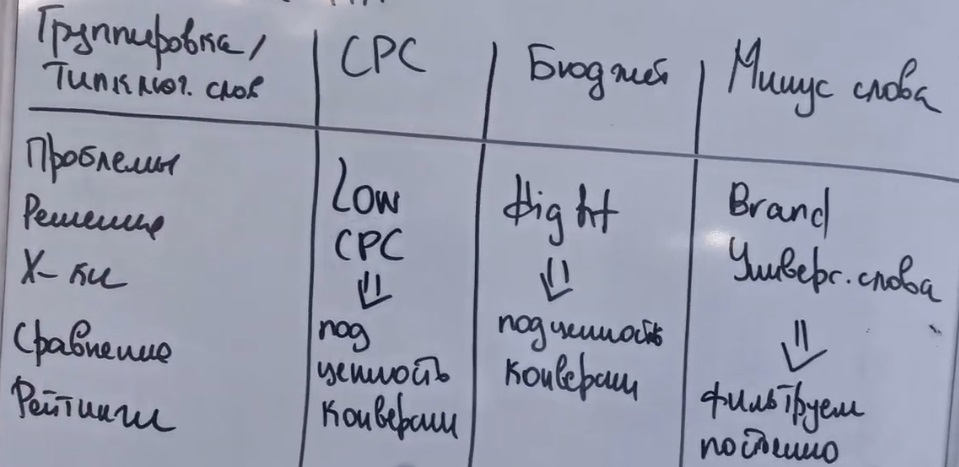 Группировка /
Тип ключ. слов
CPC
Бюджет
Минус слова
Проблемы
Решение
Х-ки
Сравнение
Рейтинги
Low
CPC
⇓
под
ценность
конверсии
Hight
⇓
под ценность
конверсии
Brand
Универс. слова
⇓
фильтруем